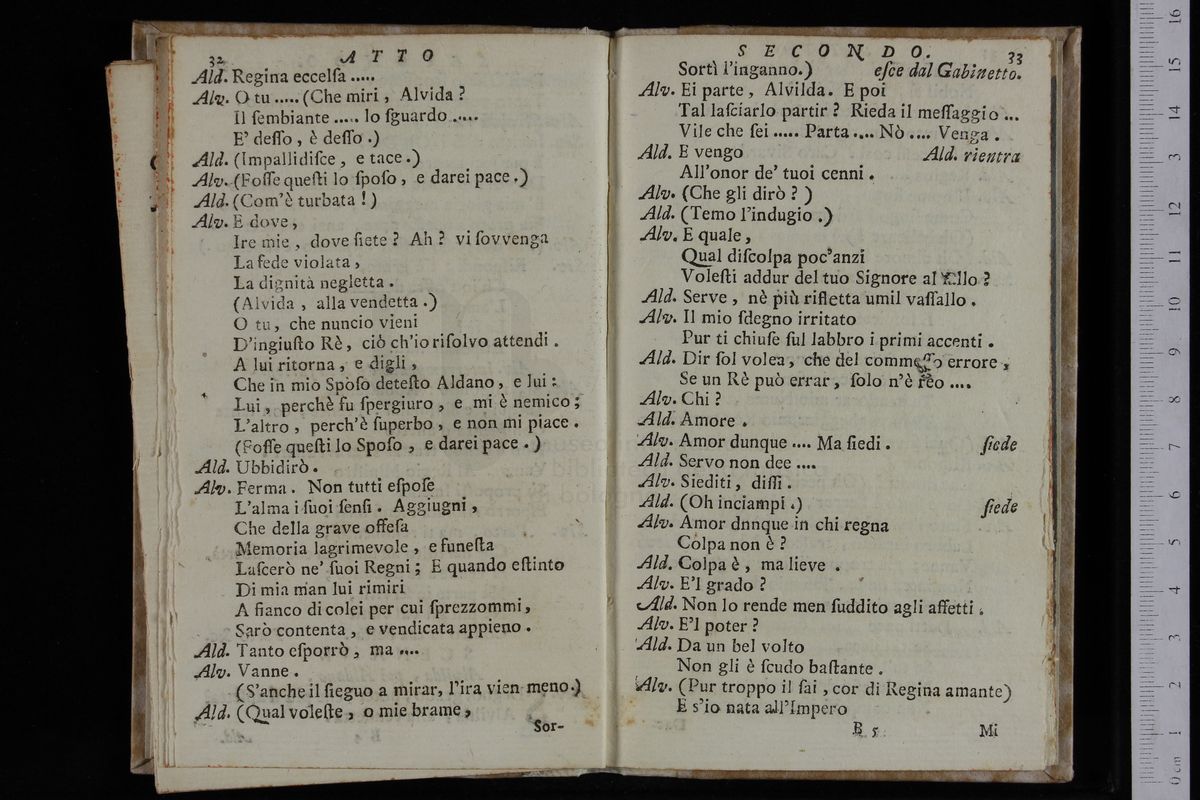 32 ATTO
Ald. Regina eccelſa .....
Alv. O tu ..... (Che miri , Alvida ?
Il ſembiante ..... lo ſguardo .....
E' deſſo , è deſſo .)
Ald. (Impallidiſce , e tace .)
Alv. (Foſſe queſti lo ſpoſo , e darei pace .)
Ald. (Com'è turbata !)
Alv. E dove ,
Ire mie , dove ſiete ? Ah ? vi ſovvenga
La fede violata ,
La dignità negletta .
(Alvida , alla vendetta .)
O tu , che nuncio vieni
D'ingiuſto Rè , ciò ch'io riſolvo attendi .
A lui ritorna , e digli ,
Che in mio Spoſo deteſto Aldano , e lui :
Lui , perchè fu ſpergiuro , e mi è nemico ;
L'altro , perch'è ſuperbo , e non mi piace .
(Foſſe queſti lo Spoſo , e darei pace . )
Ald. Ubbidirò .
Alv. Ferma . Non tutti eſpoſe
L'alma i ſuoi ſenſi . Aggiugni ,
Che della grave offeſa
Memoria lagrimevole , e funeſta
Laſcerò ne' ſuoi Regni ; E quando eſtinto
Di mia man lui rimiri
A fianco di colei per cui ſprezzommi ,
Sarò contenta , e vendicata appieno .
Ald. Tanto eſporrò , ma ....
Alv. Vanne .
(S'anche il ſieguo a mirar, l'ira vien meno.)
Ald. (Qual voleſte , o mie brame ,
Sor-
SECONDO. 33
Sortì l'inganno.) eſce dal Gabinetto.
Alv. Ei parte , Alvilda . E poi
Tal laſciarlo partir ? Rieda il meſſaggio ...
Vile che ſei ..... Parta .... Nò .... Venga .
Ald. E vengo Ald. rientra
All'onor de' tuoi cenni .
Alv. (Che gli dirò ? )
Ald. (Temo l'indugio .)
Alv. E quale ,
Qual diſcolpa poc'anzi
Voleſti addur del tuo Signore al fallo ?
Ald. Serve , nè più rifletta umil vaſſallo .
Alv. Il mio ſdegno irritato
Pur ti chiuſe ſul labbro i primi accenti .
Ald. Dir ſol volea , che del commeſſo errore ,
Se un Rè può errar , ſolo n'è reo ....
Alv. Chi ?
Ald. Amore .
Alv. Amor dunque .... Ma ſiedi . ſiede
Ald. Servo non dee ....
Alv. Siediti , diſſi .
Ald. (Oh inciampi .) ſiede
Alv. Amor dnnque in chi regna
Colpa non è ?
Ald. Colpa è , ma lieve .
Alv. E'l grado ?
Ald. Non lo rende men ſuddito agli affetti .
Alv. E'l poter ?
Ald. Da un bel volto
Non gli è ſcudo baſtante .
Alv. (Pur troppo il ſai , cor di Regina amante)
E s'io nata all'Impero
B 5 Mi
0 cm 1 2 3 4 5 6 7 8 9 10 11 12 13 14 15 16